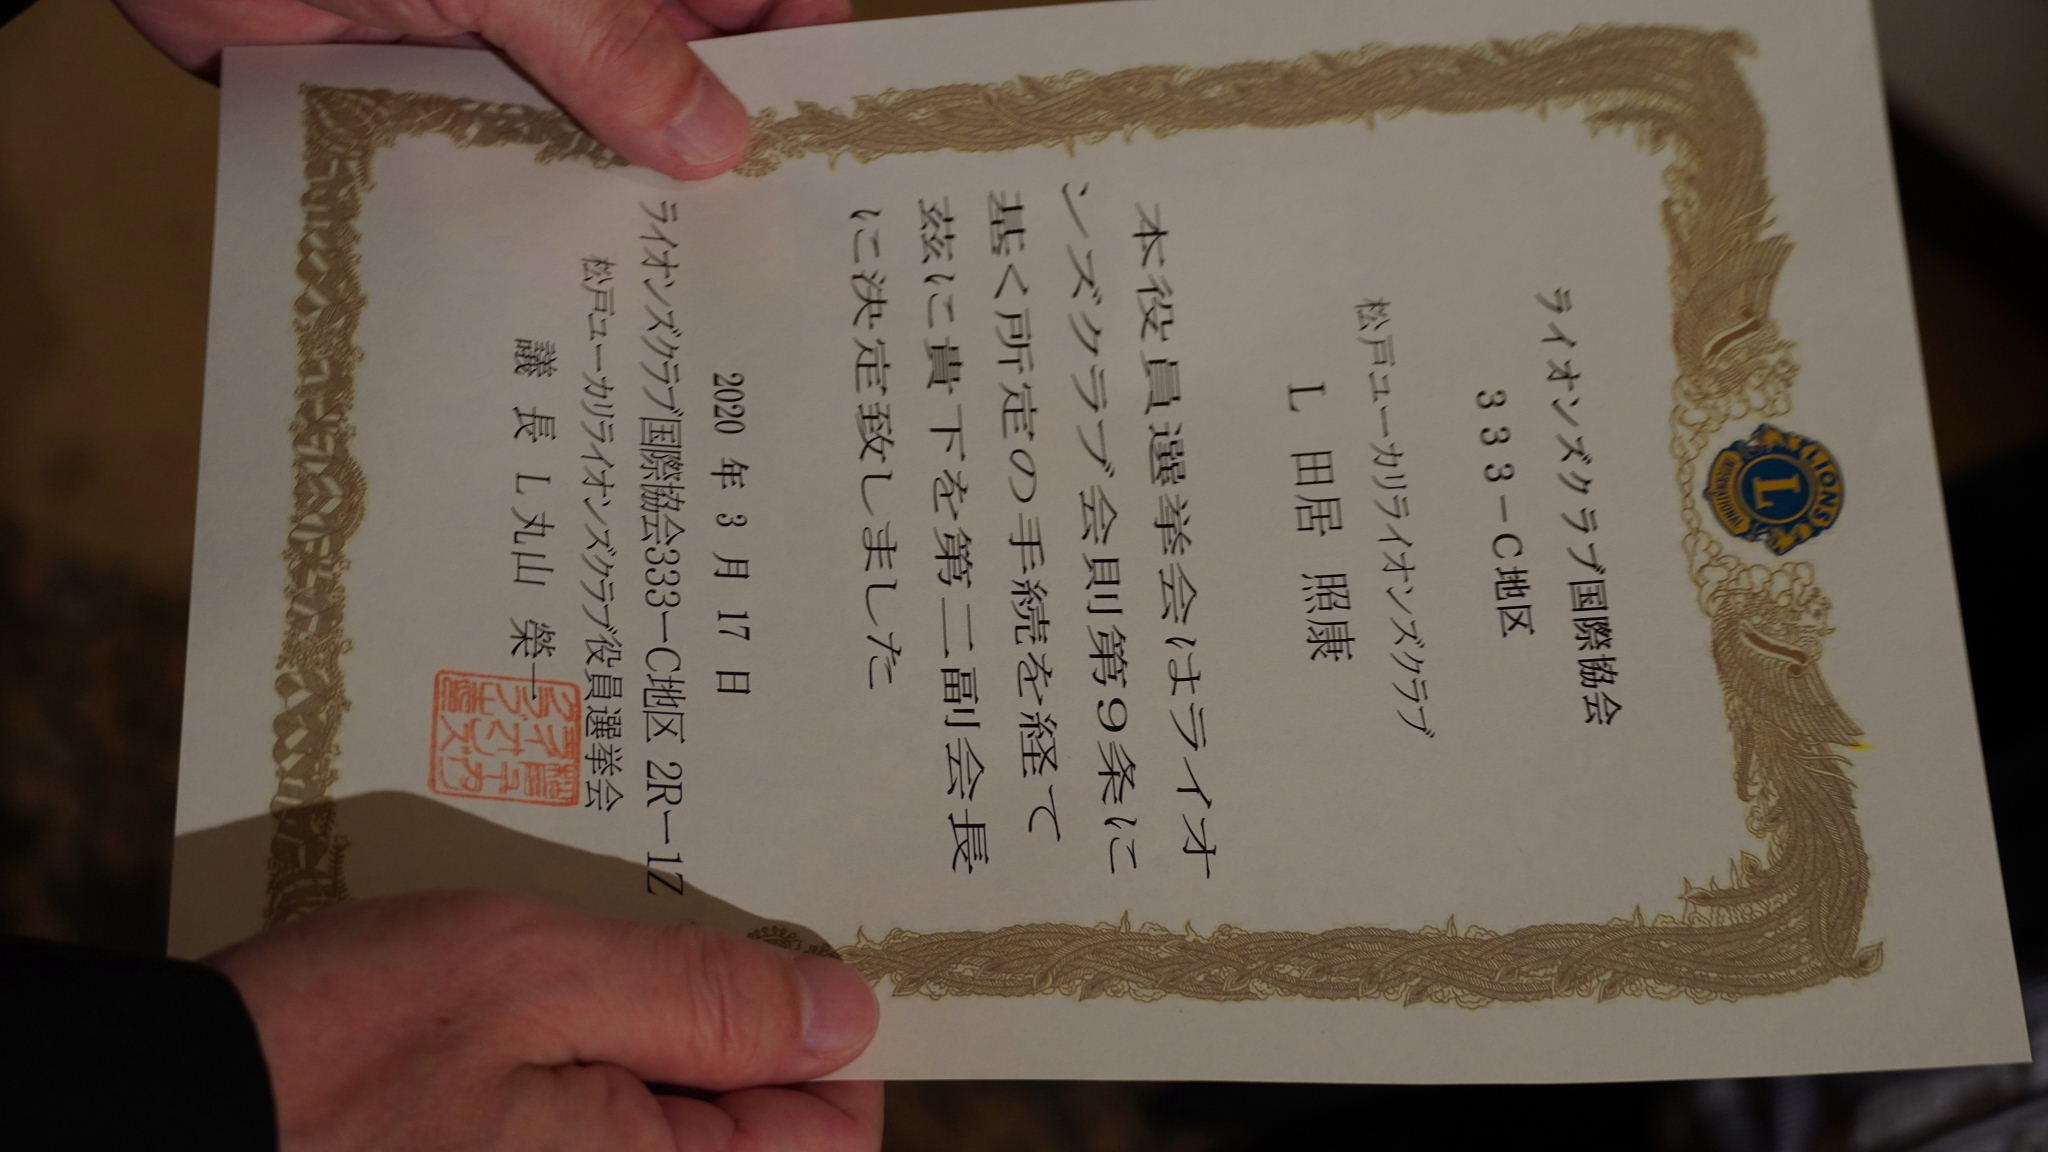 LIONS
L
INTERNATIONAL
ライオンズクラブ国際協会
333－C地区
松戸ユーカリライオンズクラブ
L 田居 照康
本役員選挙会はライオ
ンズクラブ会則第９条に
基く所定の手続を経て
茲に貴下を第二副会長
に決定致しました
2020 年 3 月 17 日
ライオンズクラブ国際協会333ーC地区 2Rー1Z
松戸ユーカリライオンズクラブ役員選挙会
議 長 L 丸山 榮一